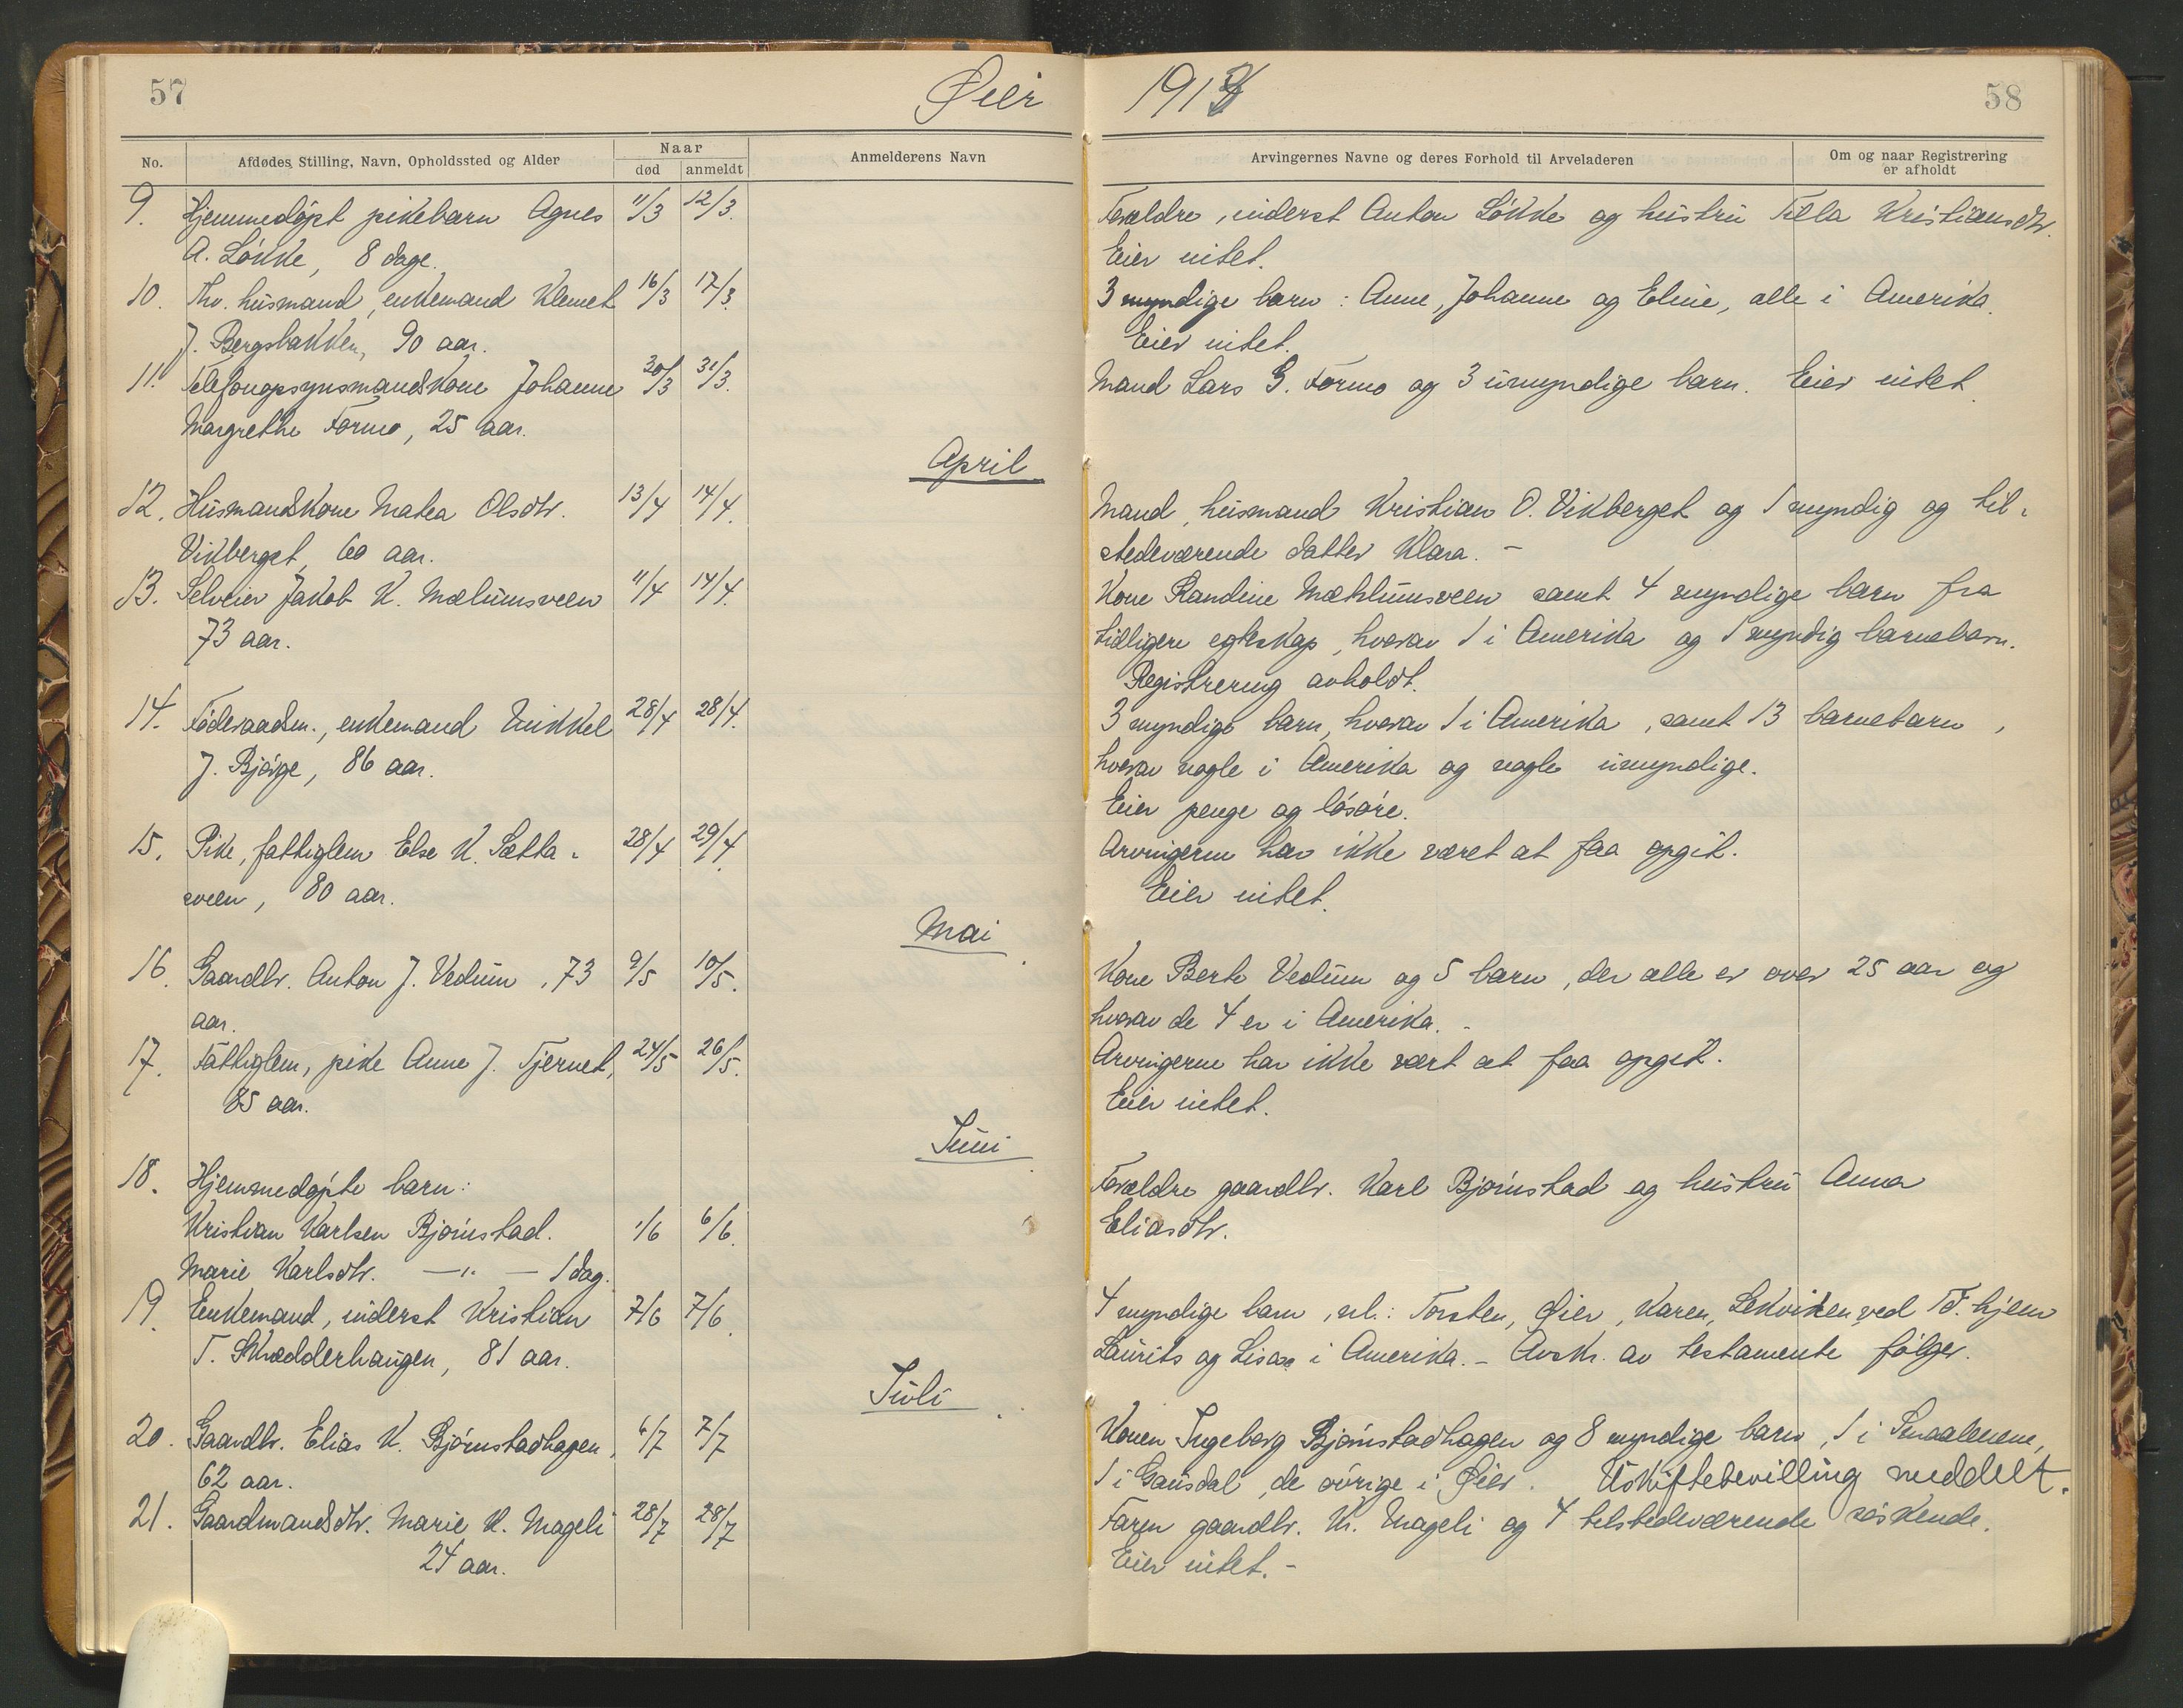 57
Øier
No.
Afdødes Stilling, Navn, Opholdssted og Alder
Naar
død
anmeldt
Anmelderens Navn
9. Hjemmedøpt pikebarn Agnes 11/3 12/3.
A. Løkke, 8 dage.
10. Fhv. husmand, enkemand Klemet 16/3 17/3.
J. Bergsbakken, 90 aar.
11. Telefonopsynsmandskone Johanne 30/3 31/3.
Margrethe Formo, 25 aar.
April
12. Husmandskone Matea Olsdtr. 13/4 14/4.
Vikberget, 60 aar.
13. Selveier Jakob K. Mælumsveen 11/4 14/4.
73 aar.
14. Føderaadsm., enkemand Mikkel 28/4 28/4.
J. Bjørge, 86 aar.
15. Pike, fattiglem Else K. Sætta-
sveen, 80 aar. 28/4 29/4.
Mai
16. Gaardbr. Anton J. Vedum, 73 9/5 10/5.
aar.
17. Fattiglem, pike Anne J. Tjernet, 24/5 26/5.
85 aar.
Juni
18. Hjemmedøpte barn:
Kristian Karlsen Bjørnstad. 1/6 6/6.
Marie Karlsdtr. —"— 1 dag.
19. Enkemand, inderst Kristian 7/6 7/6.
T. Skædderhaugen, 81 aar.
Juli
20. Gaardbr. Elias K. Bjørnstadhagen, 6/7 7/7
62 aar.
21. Gaardmandsdtr. Marie K. Mageli 28/7 28/7
24 aar.
1914
58
Arvingernes Navne og deres Forhold til Arveladeren
Om og naar Registrering
er afholdt
Forældre, inderst Anton Løkke og hustru Kristiansdtr.
Eier intet.
3 myndige barn: Anne, Johanne og Eline, alle i Amerika.
Eier intet.
Mand Lars G. Formo og 3 umyndige barn. Eier intet.
Mand, husmand Kristian O. Vikberget og 1 myndig og til-
stedeværende datter Klara. –
Kone Randine Mæhlumsveen samt 4 myndige barn fra
tidligere egteskap, hvorav 1 i Amerika og 1 myndig barnebarn.
Registrering avholdt.
3 myndige barn, hvorav 1 i Amerika, samt 13 barnebarn,
hvorav nogle i Amerika og nogle umyndige.
Eier penge og løsøre.
Arvingerne har ikke været at faa opgit.
Eier intet.
Kone Berte Vedum og 5 barn, der alle er over 25 aar og
hvorav de 4 er i Amerika. -
Arvingerne har ikke vært at faa opgit.
Eier intet.
Forældre gaardbr. Karl Bjørnstad og hustru Anna
Eliasdtr.
4 myndige barn, nl.: Torsten, Øier, Karen, Lekviken ved Tr.hjem
Laurits og Lisa i Amerika. – Avskr. av testamente følger.
Konen Ingeborg Bjørnstadhagen og 8 myndige barn, 1 i Smaalenene,
1 i Gausdal, de øvrige i Øier. Uskiftebevilling meddelt.
Faren gaardbr. K. Mageli og 4 tilstedeværende søskende.
Eier intet. –